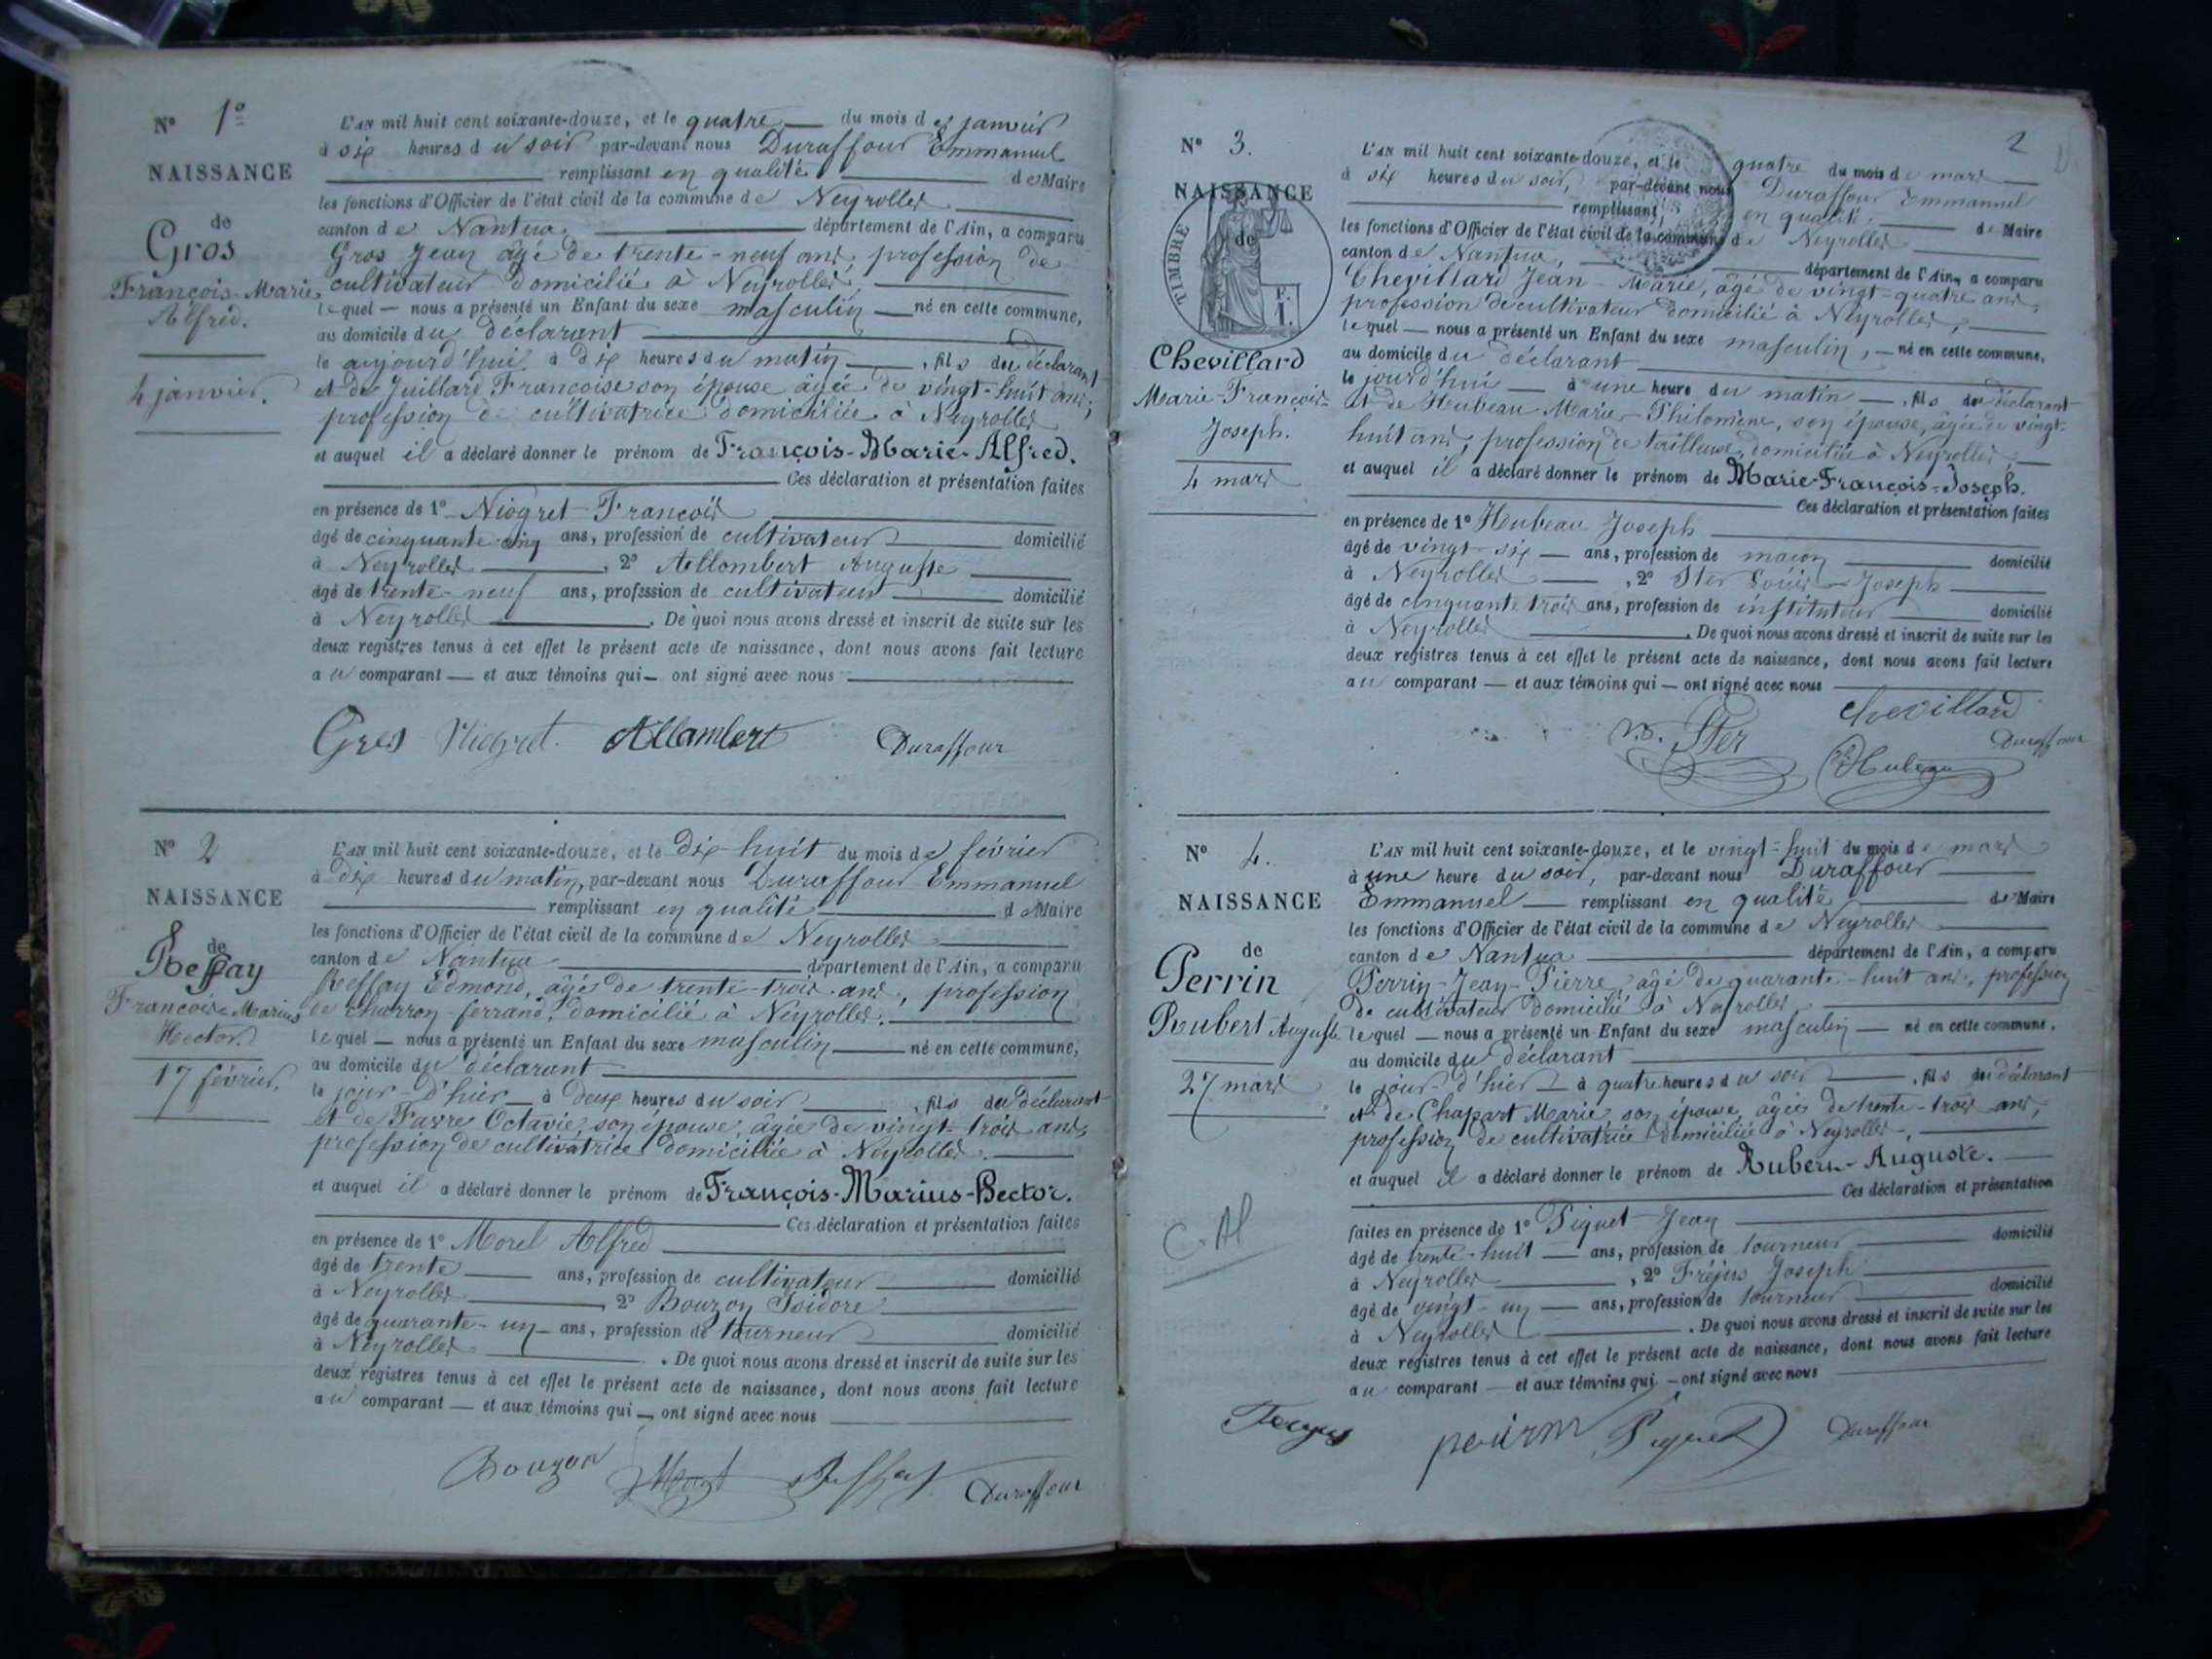 N° 1°
NAISSANCE
de
Gros
François-Marie
Alfred.
4 janvier.
L'AN mil huit cent soixante-douze, et le quatre du mois de janvier
à six heures du soir par-devant nous Duraffour Emmanuel
remplissant en qualité de Maire
les fonctions d'Officier de l'état civil de la commune de Neyrolles
canton de Nantua, département de l'Ain, a comparu
Gros Jean âgé de trente-neuf ans, profession de
cultivateur domicilié à Neyrolles,
lequel — nous a présenté un Enfant du sexe masculin — né en cette commune,
au domicile du déclarant
le aujourd'hui à dix heures du matin, fils du déclarant
et de Juillard Françoise son épouse âgée de vingt-huit ans,
profession de cultivatrice domiciliée à Neyrolles
et auquel il a déclaré donner le prénom de François-Marie-Alfred.
Ces déclaration et présentation faites
en présence de 1° Niogret François
âgé de cinquante-cinq ans, profession de cultivateur domicilié
à Neyrolles, 2° Allombert Auguste
âgé de trente-neuf ans, profession de cultivateur domicilié
à Neyrolles. De quoi nous avons dressé et inscrit de suite sur les
deux registres tenus à cet effet le présent acte de naissance, dont nous avons fait lecture
au comparant — et aux témoins qui — ont signé avec nous
Gros Niogret Allambert Duraffour
N° 2
NAISSANCE
de
Reffay
François-Marius
Hector.
17 février.
L'AN mil huit cent soixante-douze, et le dix-huit du mois de février
à dix heures du matin, par-devant nous Duraffour Emmanuel
remplissant en qualité de Maire
les fonctions d'Officier de l'état civil de la commune de Neyrolles
canton de Nantua département de l'Ain, a comparu
Reffay Edmond, âgé de trente-trois ans, profession
de charron-ferrand, domicilié à Neyrolles.
lequel — nous a présenté un Enfant du sexe masculin — né en cette commune,
au domicile du déclarant
le jour d'hier à deux heures du soir, fils du déclarant
et de Favre Octavie, son épouse, âgée de vingt-trois ans,
profession de cultivatrice domiciliée à Neyrolles.
et auquel il a déclaré donner le prénom de François-Marius-Hector.
Ces déclaration et présentation faites
en présence de 1° Morel Alfred
âgé de trente ans, profession de cultivateur domicilié
à Neyrolles, 2° Bouzon Isidore
âgé de quarante-un ans, profession de tourneur domicilié
à Neyrolles. De quoi nous avons dressé et inscrit de suite sur les
deux registres tenus à cet effet le présent acte de naissance, dont nous avons fait lecture
au comparant — et aux témoins qui — ont signé avec nous
Bouzon Reffay Duraffour
2
N° 3.
NAISSANCE
de
TIMBRE
Chevillard
Marie-François-
Joseph.
4 mars
L'AN mil huit cent soixante-douze, et le quatre du mois de mars
à six heures du soir, par-devant nous Duraffour Emmanuel
remplissant, en qualité de Maire
les fonctions d'Officier de l'état civil de la commune de Neyrolles
canton de Nantua, département de l'Ain, a comparu
Chevillard Jean-Marie, âgé de vingt-quatre ans,
profession de cultivateur domicilié à Neyrolles,
lequel — nous a présenté un Enfant du sexe masculin, — né en cette commune,
au domicile du déclarant
le jourd'hui à une heure du matin, fils du déclarant
et de Hubeau Marie-Philomène, son épouse, âgée de vingt-
huit ans, profession de tailleuse, domiciliée à Neyrolles,
et auquel il a déclaré donner le prénom de Marie-François-Joseph.
Ces déclaration et présentation faites
en présence de 1° Hubeau Joseph
âgé de vingt-six ans, profession de maçon domicilié
à Neyrolles, 2° Ster Louis-Joseph
âgé de cinquante trois ans, profession de instituteur domicilié
à Neyrolles. De quoi nous avons dressé et inscrit de suite sur les
deux registres tenus à cet effet le présent acte de naissance, dont nous avons fait lecture
au comparant — et aux témoins qui — ont signé avec nous
Chevillard
Ster Duraffour
Hubeau
N° 4.
NAISSANCE
de
Perrin
Rubert Auguste
27 mars
C. Al
L'AN mil huit cent soixante-douze, et le vingt-huit du mois de mars
à une heure du soir, par-devant nous Duraffour
Emmanuel — remplissant en qualité de Maire
les fonctions d'Officier de l'état civil de la commune de Neyrolles
canton de Nantua département de l'Ain, a comparu
Perrin-Jean-Pierre, âgé de quarante-huit ans, profession
de cultivateur domicilié à Neyrolles
lequel — nous a présenté un Enfant du sexe masculin — né en cette commune,
au domicile du déclarant
le jour d'hier à quatre heures du soir, fils du déclarant
et de Chapart Marie, son épouse, âgée de trente-trois ans,
profession de cultivatrice domiciliée à Neyrolles,
et auquel il a déclaré donner le prénom de Rubert-Auguste.
Ces déclaration et présentation
faites en présence de 1° Piquet Jean
âgé de trente-huit ans, profession de tourneur domicilié
à Neyrolles, 2° Fréjus Joseph
âgé de vingt-un ans, profession de tourneur domicilié
à Neyrolles. De quoi nous avons dressé et inscrit de suite sur les
deux registres tenus à cet effet le présent acte de naissance, dont nous avons fait lecture
au comparant — et aux témoins qui — ont signé avec nous
Piquet Duraffour